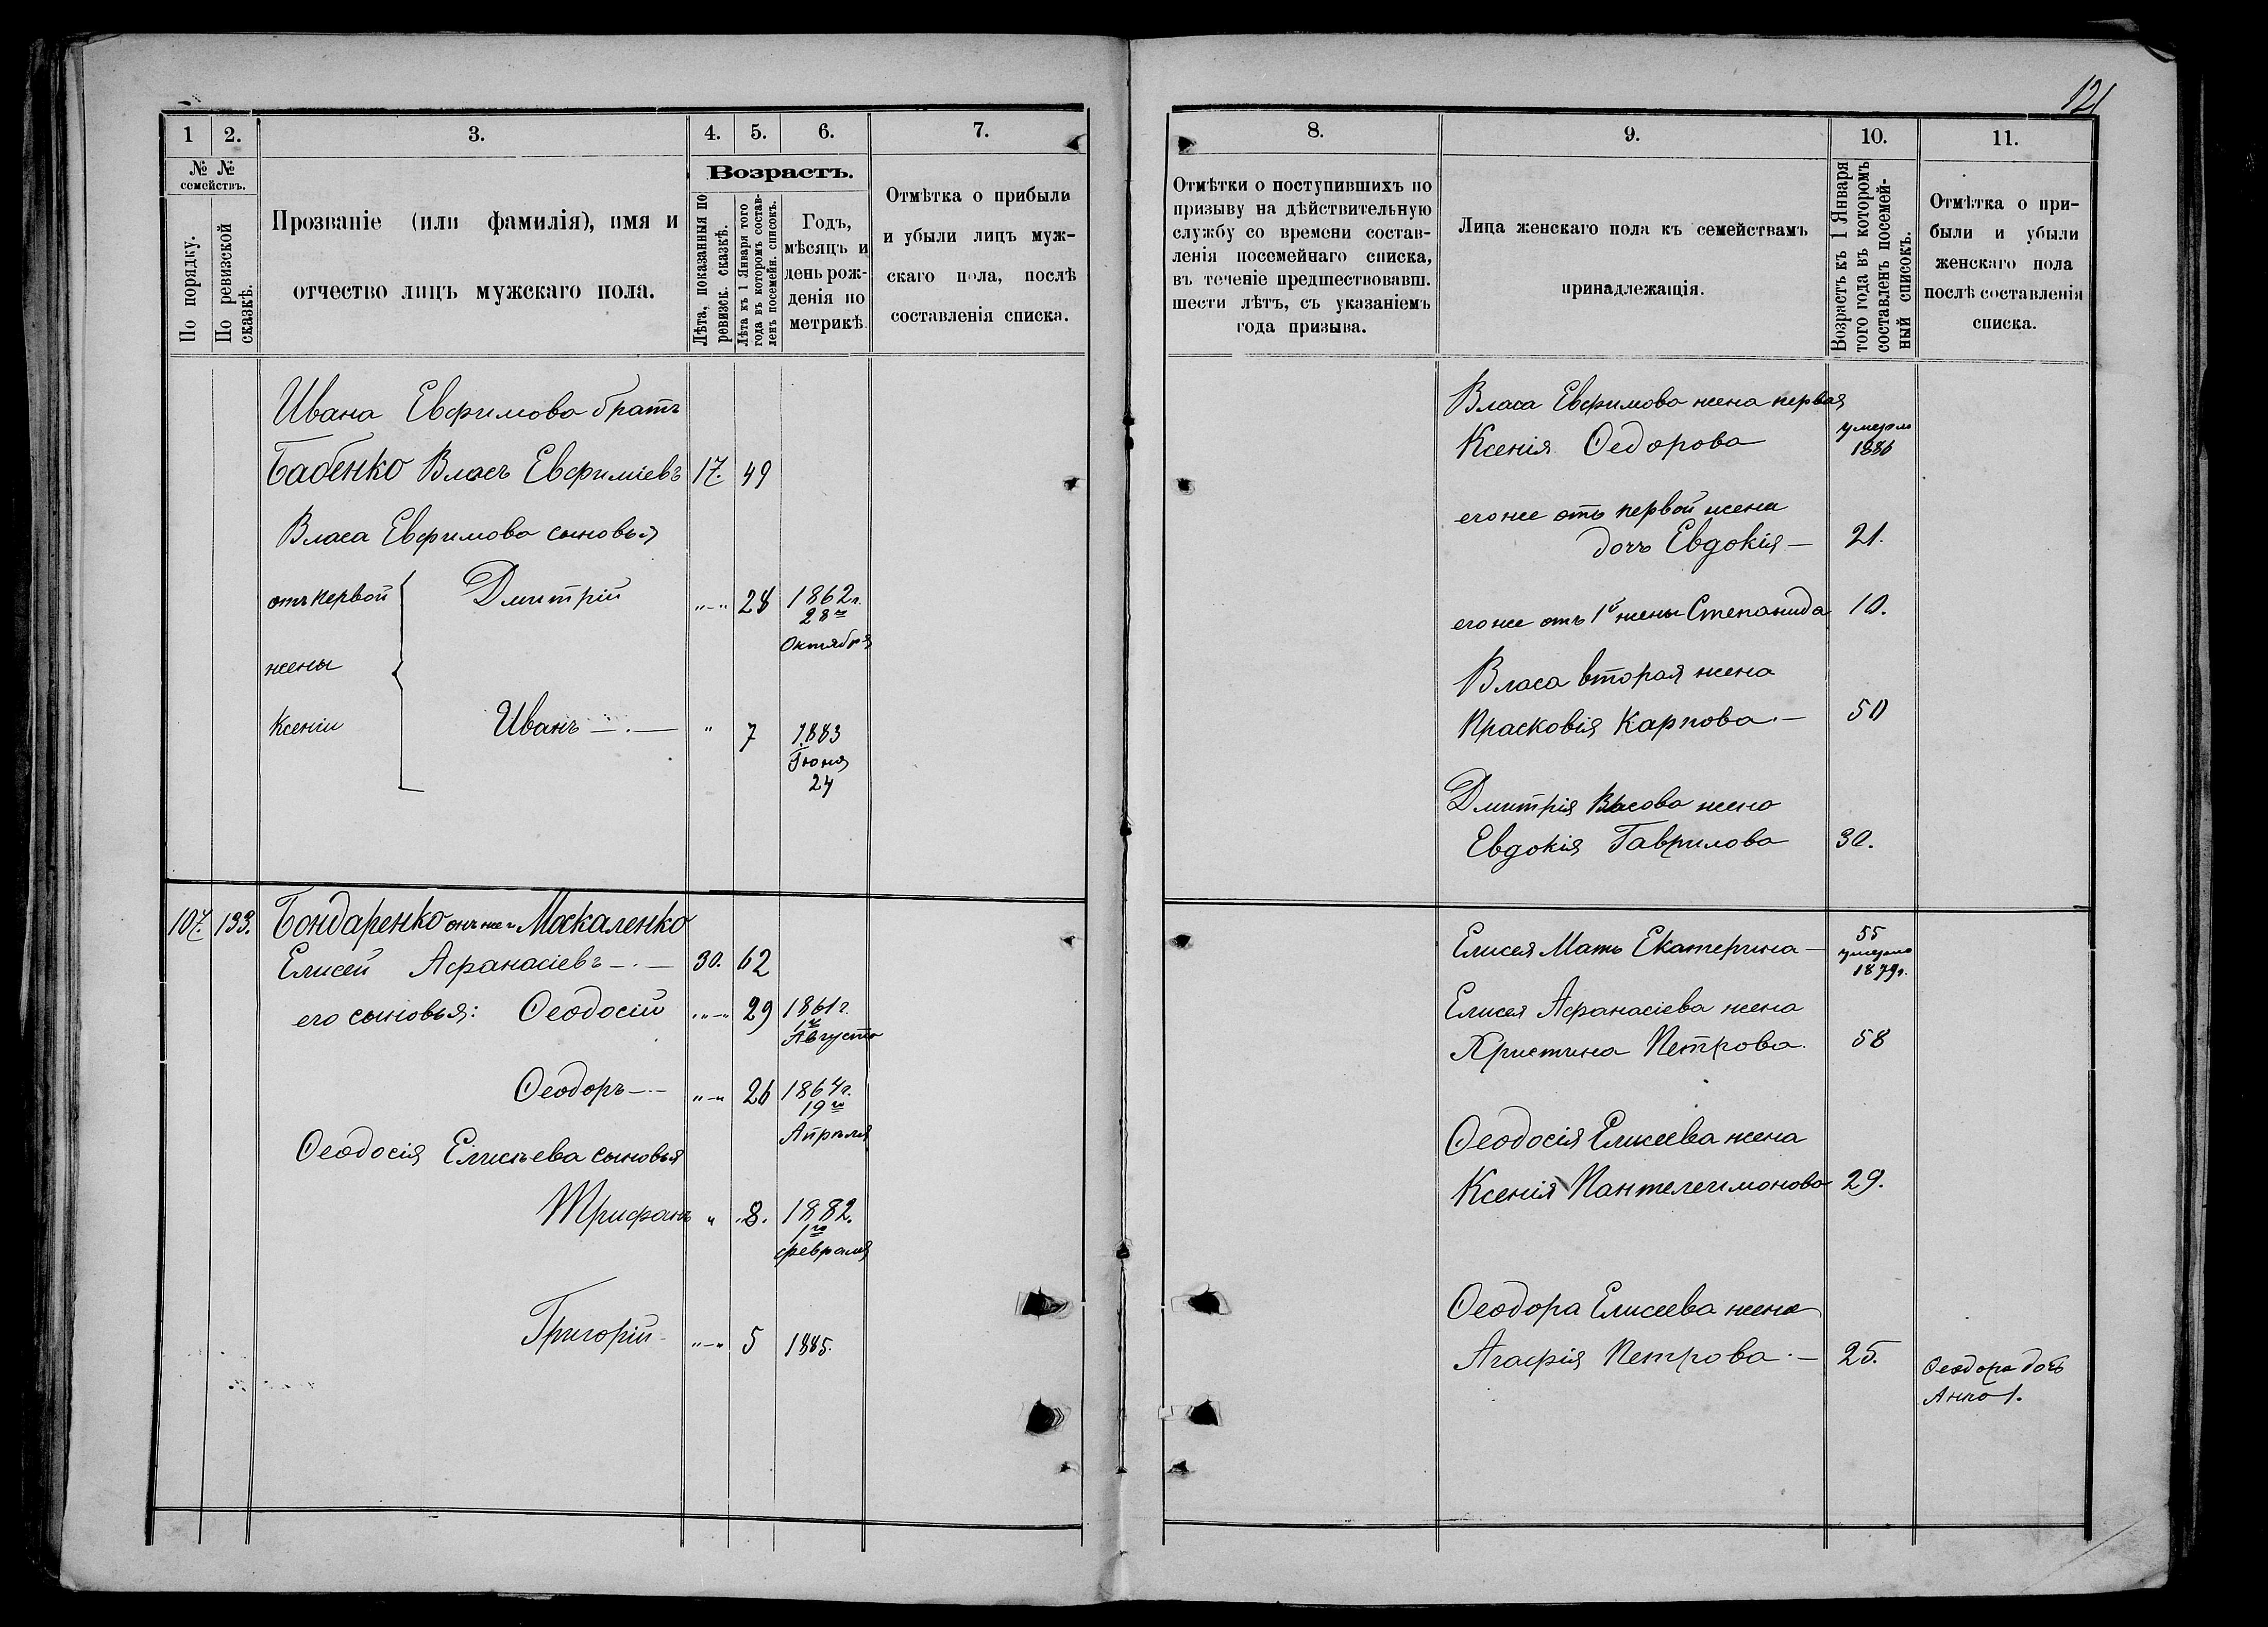 121
1
2.
3.
4.
5.
6.
7.
№ №
семействъ.
По порядку.
По ревизской
сказкѣ.
Прозваніе (или фамилія), имя и
отчество лицъ мужскаго пола.
Возрастъ.
Лѣта, показанныя по
ревизск. сказкѣ.
Лѣта къ 1 Января того
года въ которомъ состав-
ленъ посемейн. списокъ.
Годъ,
мѣсяцъ и
день рож-
денія по
метрикѣ
Отмѣтка о прибыли
и убыли лицъ муж-
скаго пола, послѣ
составленія списка.
Ивана Евфимова братъ
Бабенко Власъ Евфиміевъ 17. 49
Власа Евфимова сыновья
отъ первой Дмитрій „–„ 28 1862 г.
28го
Октября
жены
Ксеніи Иванъ „ 7 1883
Іюня
24
107. 133. Бондаренко онъ же и Маскаленко
Елисей Афанасіевъ 30. 62
его сыновья: Ѳеодосій „–„ 29 1861 г.
1го
Августа
Ѳеодоръ „–„ 26 1864 г.
19го
Апрѣля
Ѳеодосія Елисѣева сыновья
Трифанъ „ 8. 1882.
1го
февраля
Григорій „–„ 5 1885.
8.
9.
10.
11.
Отмѣтки о поступившихъ по
призыву на дѣйствительную
службу со времени состав-
ленія посемейнаго списка,
въ теченіе предшествовавш.
шести лѣтъ, съ указаніемъ
года призыва.
Лица женскаго пола къ семействамъ
принадлежащія.
Возрастъ къ 1 Января
того года въ которомъ
составленъ посемей-
ный списокъ.
Отмѣтка о при-
были и убыли
женскаго пола
послѣ составленія
списка.
Власа Евфимова жена первая
Ксенія Ѳедорова умерла
1886
его же отъ первой жены
дочь Евдокія — 21.
его же отъ 1й жены Степанида 10.
Власа вторая жена
Прасковія Карпова — 50
Дмитрія Власова жена
Евдокія Гаврилова 30.
Елисея Мать Екатерина — 55
умерла
1879 г.
Елисея Афанасіева жена
Христина Петрова. 58
Ѳеодосія Елисеева жена
Ксенія Пантелеимонова 29.
Ѳеодора Елисеева жена
Агафія Петрова — 25. Ѳеодора дочь
Анна 1.